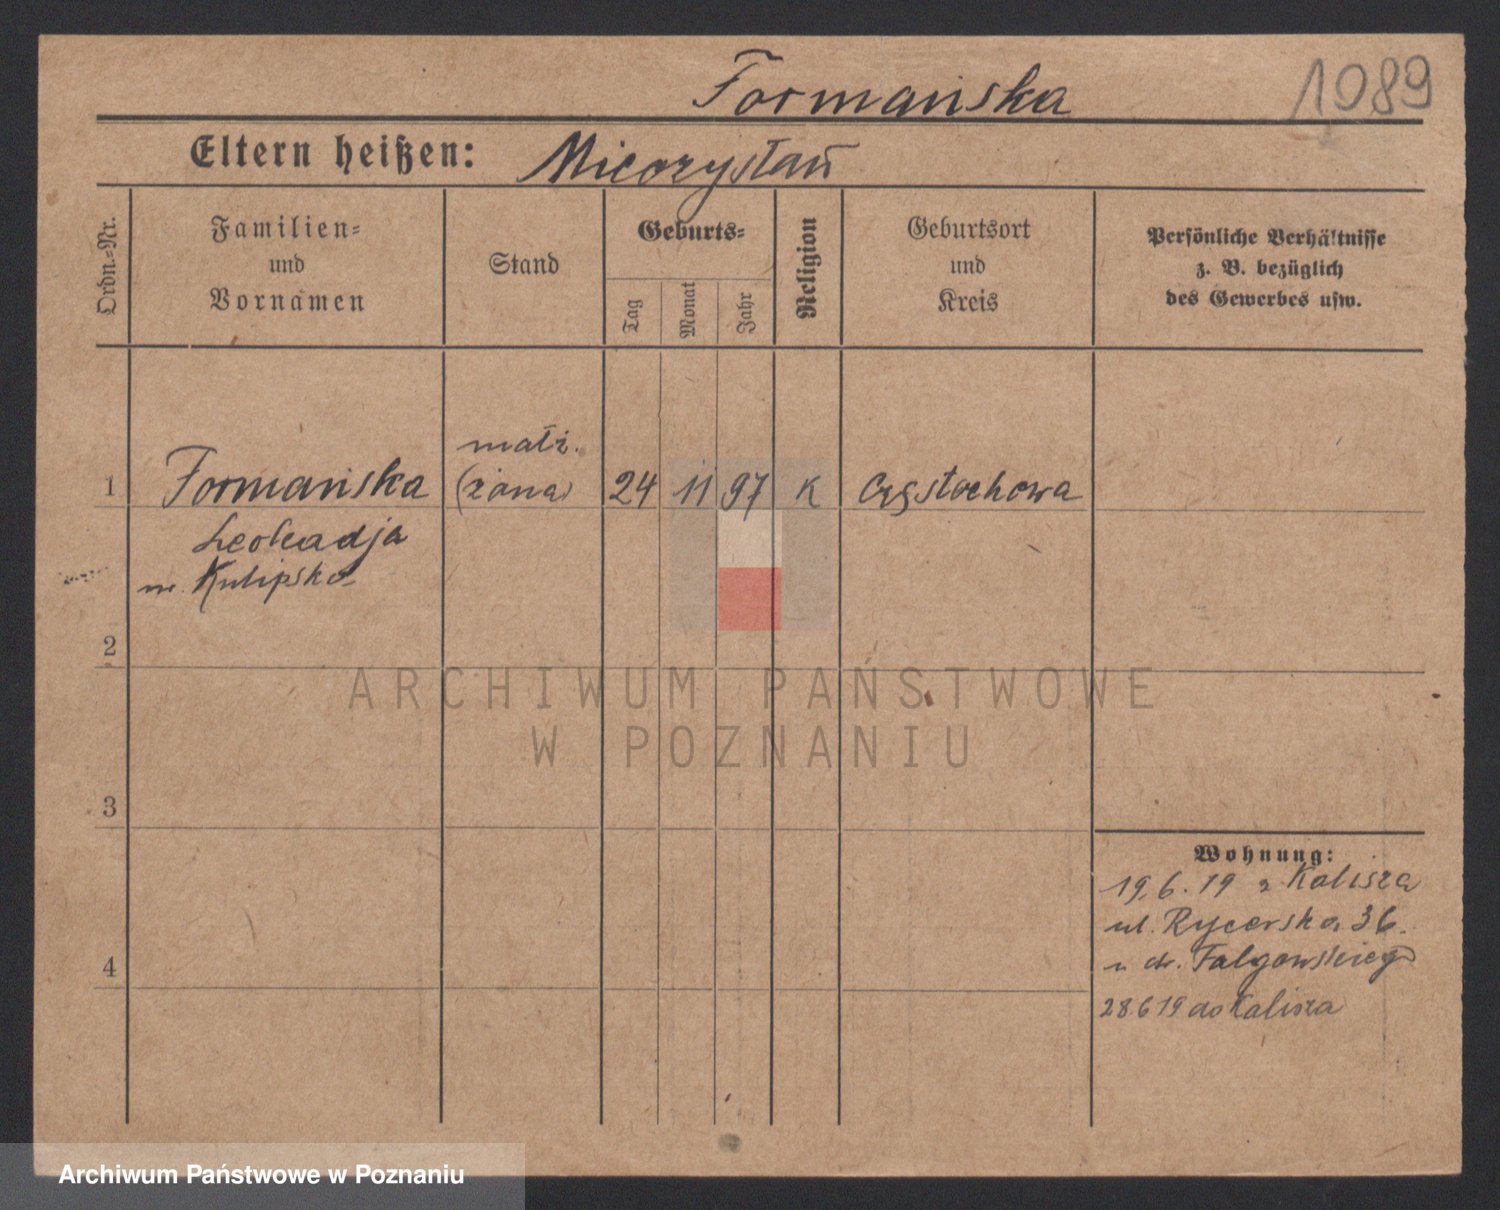 Formańska
1989
Eltern heißen:
Ordn.-Nr.
Familien-
und
Vornamen
Stand
Geburts-
Tag
Monat
Jahr
Religion
Geburtsort
und
Kreis
Persönliche Verhältnisse
z. B. bezüglich
des Gewerbes usw.
1
Formańska
małż.
(żona)
24
11
97
K
Częstochowa
Leokadja
2
3
Wohnung:
19.6.19 z Kalisza
ul. Rycerska 36.
Falgowskiego
4
28.6 19 do Kalisza
ARCHIWUM PAŃSTWOWE
W POZNANIU
Archiwum Państwowe w Poznaniu